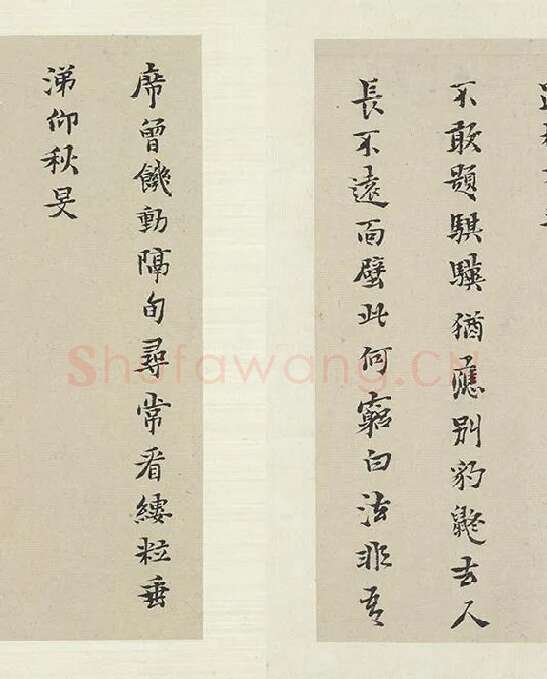 不敢題騏驥猶應別豹鼮去人
長不遠面壁此何窮白法非吾
席曾饑動隔旬尋常看縷粒垂
涕仰秋旻
Shufawang.CN